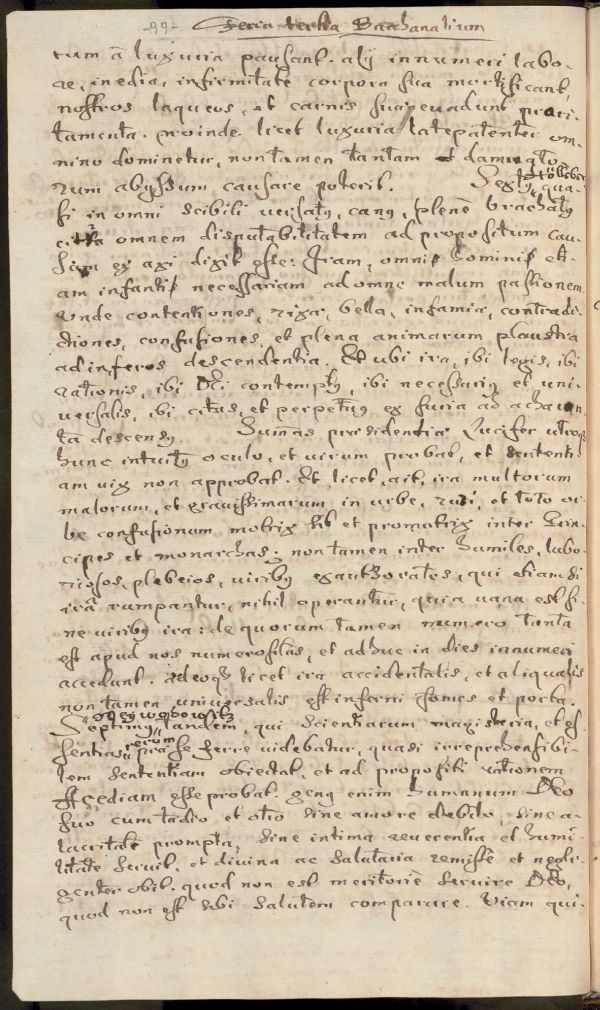 -99- Feria tertia Bacchanalium
rum à luxuria pausant. alij innumeri labo-
re, inedia, infirmitate corpora sua mortificant,
nostros laqueos, et carnis suae evadunt pruri-
tamenta. proinde licet luxuria latè patenter om-
nino dominetur, non tamen tantam damnato
rum abyssum causare poterit. Sextus, qua-
si in omni scibili versatus, canus, plenè brachatus
citra omnem disputabilitatem ad propositum cau-
sam ex axi dixit esse: Iram, omnis hominis eti-
am infantis necessariam ad omne malum passionem.
Unde contentiones, rixae, bella, infamia, contradi-
ctiones, confusiones, et plena animarum plaustra
ad inferos descendentia. Et ubi ira, ibi legis, ibi
rationis, ibi Dei contemptus, ibi necessarius et uni-
versalis, ibi citus, et perpetuus ex furia ad acheron-
ta descensus. Summae praesidentiae Lucifer utroque
hunc intuitus oculo, et virum probat, et sententi-
am vix non approbat. Et licet, ait, ira multorum
malorum, et gravissimarum in urbe, ruri, et toto or-
be confusionum motrix sit et promotrix inter Prin-
cipes et monarchas; non tamen inter humiles, labo-
riosos, plebeios, viribus exauthoratos, qui etiamsi
irâ rumpantur, nihil operantur, quia vana est si-
ne viribus ira: de quorum tamen numero tanta
est apud nos numerositas, et adhuc in dies innumeri
accedunt. adeoque licet ira accidentalis, et aliqualis
non tamen universalis est inferni fomes et porta.
Septimus tandem, qui scientiarum magisteria, et es-
sentias rerum prae se ferre videbatur, quasi irreprehensibi-
lem sententiam obiectat, et ad propositi rationem
Acediam esse probat. genus enim humanum Deo
suo cum taedio et otio sine amore debito, sine a-
lacritate prompta, sine intima reverentia et humi-
litate servit, et divina ac salutaria remissè et negli-
genter obit. quod non est meritoriè servire Deo,
quod non est sibi salutem comparare. Viam qui-